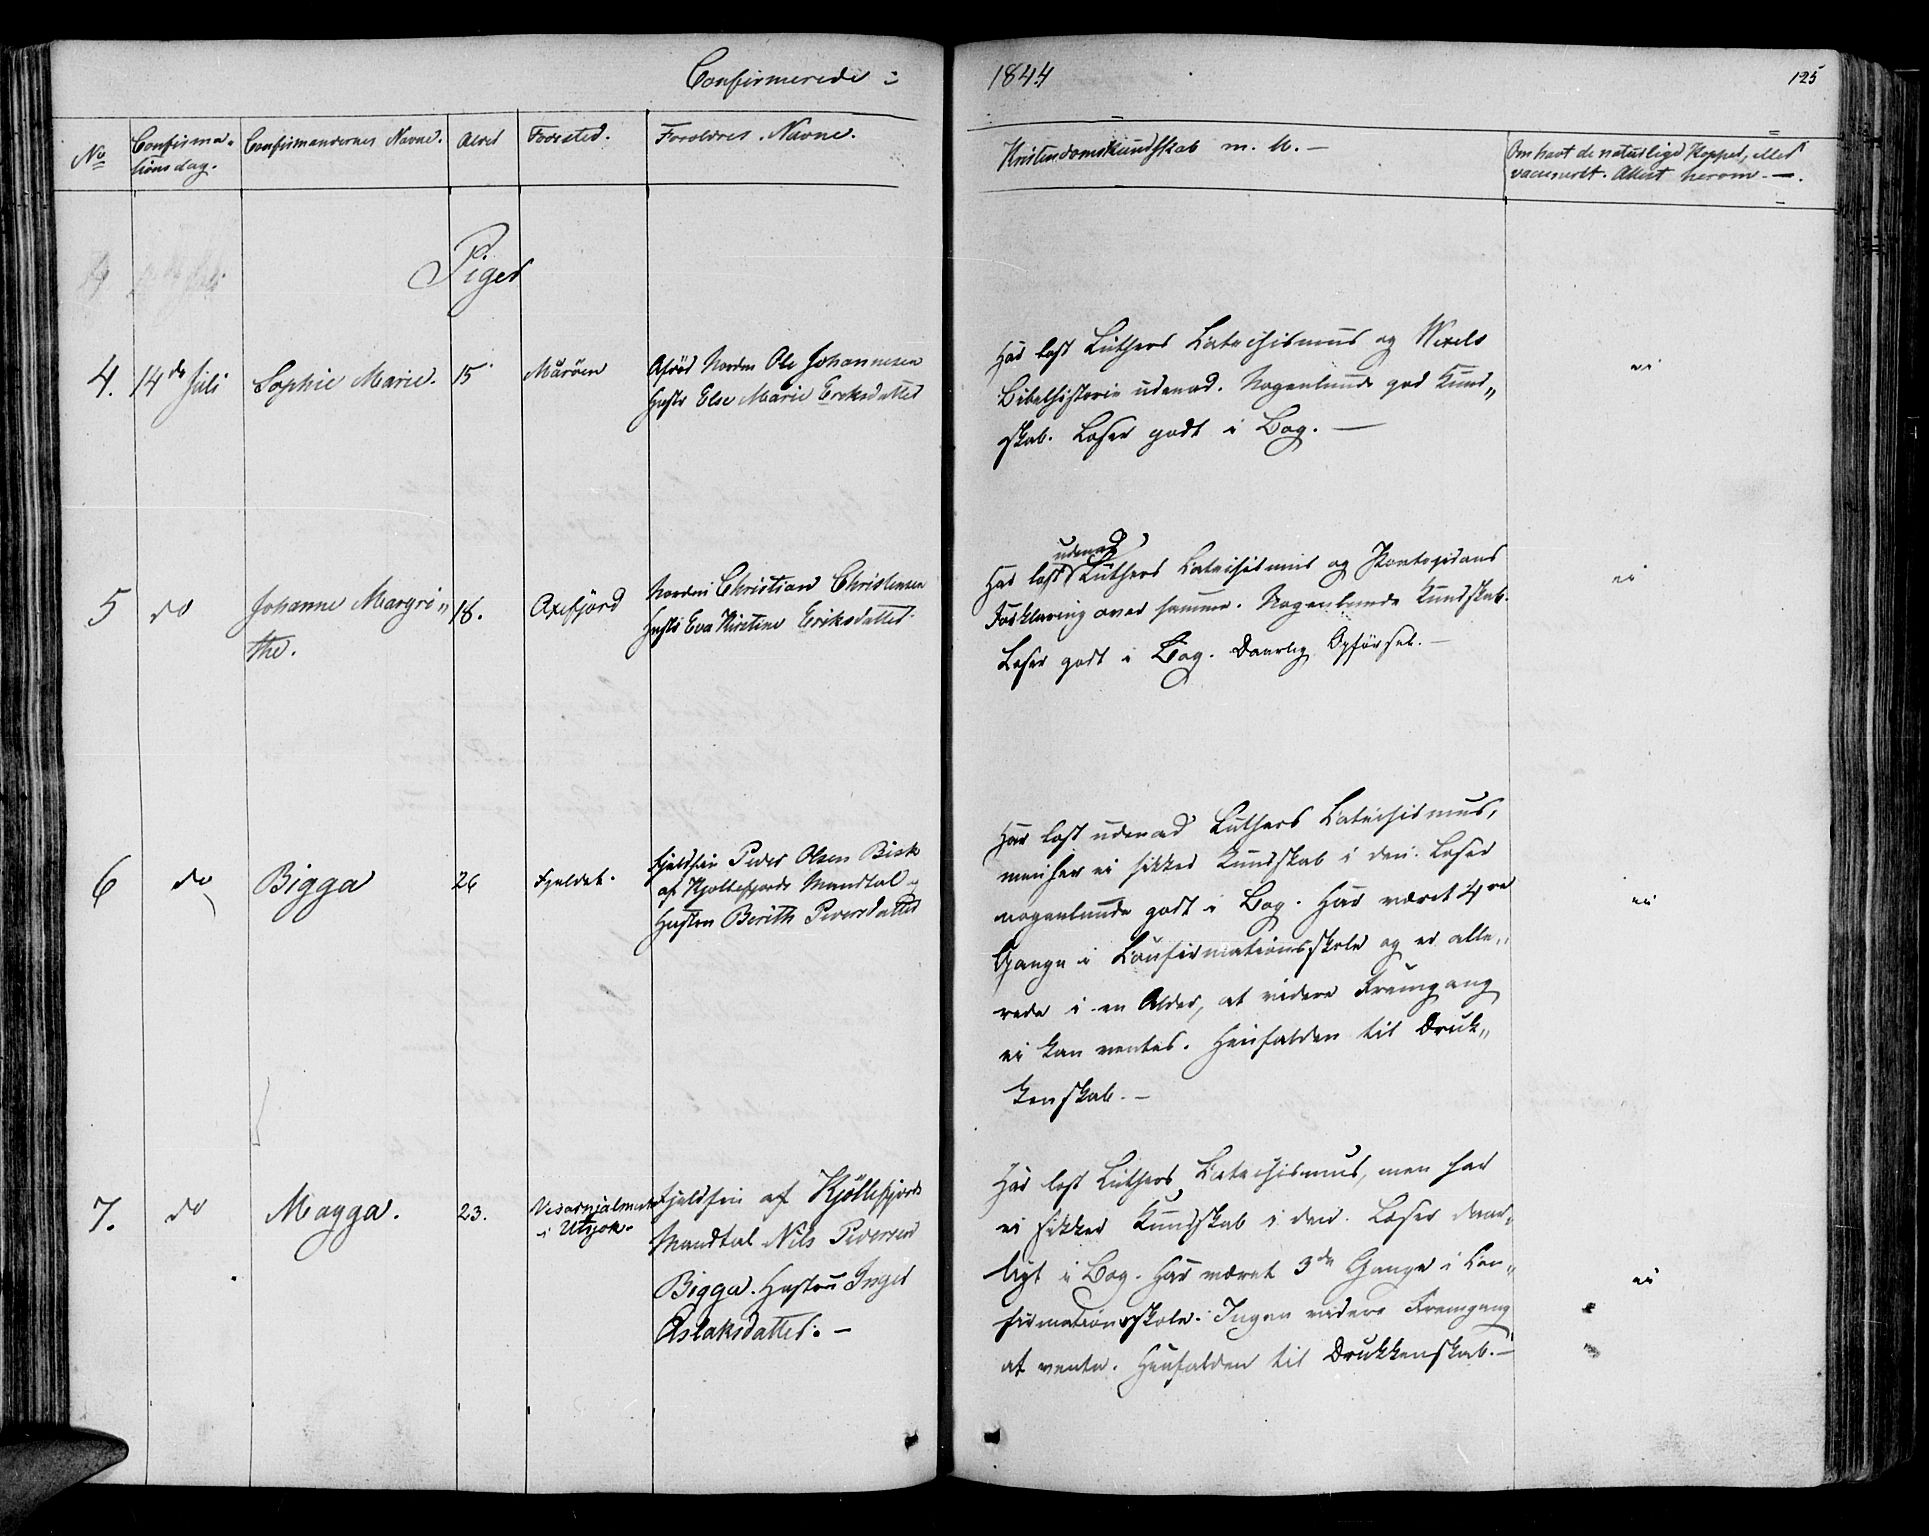 Confirmerede : 1844
125
No
Confirma-
tionsdag.
Confirmandernes Navne.
Alder
Fødested.
Forældres Navne.
Kristendomskundskab m. M. —
Om havt de naturlige Kopper, eller
vaccineret. Attest herom. —.
Piger
4. 14de Juli Sophie Marie. 15 Mårøen
Afdød Normn Ole Johannesen
Hustr Else Marie Eriksdatter
Har læst Luthers Catechismus og Wexels
Bibelhistorie udenad. Nogenlunde god Kund„
skab. Læser godt i Bog. —
ei
5 do Johanne Margri„
the.
18. Oxefjord
Normn Christian Christensen
Hustr Eva Kirstine Eriksdatter.
udenad
Har læst Luthers Catechismus og Pontopidans
Forklaring over samme. Nogenlunde Kundskab.
Læser godt i Bog. Daarlig Opførsel. —
ei
6 do Bigga 26 Fjeldet.
Fjeldfin Peder Olsen Bisk
af Kjøllefjords Mandtal og
Hustru Berith Pedersdatter
Har læst udenad Luthers Catechismus,
men har ei sikker Kundskab i den. Læser
nogenlunde godt i Bog. Har været 4re
Gange i Confirmationsskole og er alle„
rede i en Alder, at videre Fremgang
ei kan ventes. Henfalden til Druk„
kenskab. —
ei
7. do Magga. 23.
i Utsjok.
Fjeldfin af Kjøllefjords
Mandtal Nils Pedersen
Bigga. Hustru Inger
Aslaksdatter. —
Har læst Luthers Catechismus, men har
ei sikker Kundskab i den. Læser daar„
ligt i Bog. Har været 3de Gange i Con„
firmationsskole. Ingen videre Fremgang
at vente. Henfalden til Drukkenskab. —
ei